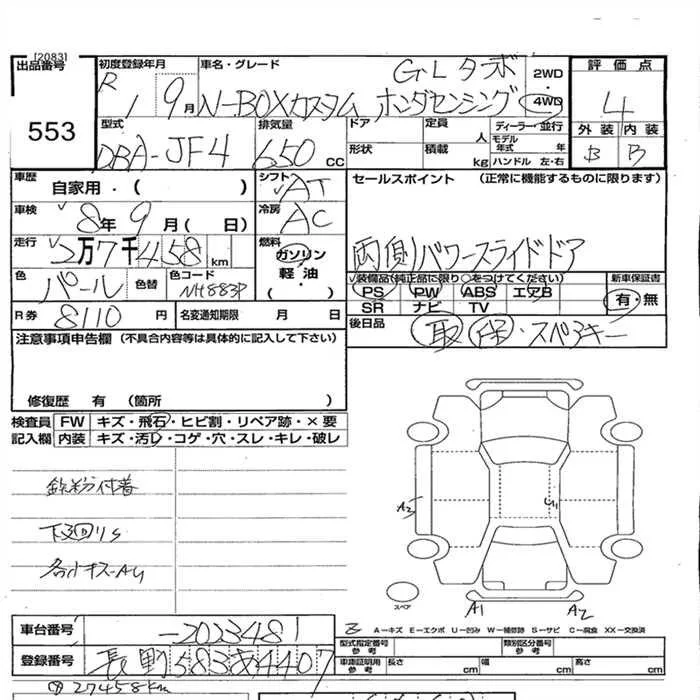 [2083]
出品番号
553
初度登録年月
R 1 9月
車名・グレード
GLターボ
N-BOXカスタム ホンダセンシング
2WD・4WD
評価点
4
外装 内装
B B
型式
DBA-JF4
排気量
650 cc
ドア
形状
定員 人
積載 kg
ディーラー・並行
モデル年式 年式
ハンドル 左・右
車歴
自家用・( )
シフト
AT
セールスポイント (正常に機能するものに限ります)
両側パワースライドドア
車検
8年9月( 日)
冷房
AC
走行
2万7千458km
燃料
ガソリン
軽油
( ・ )
色
パール
色替
色コード
NH883P
✓装備品(純正品に限り○をつけてください)
PS PW ABS エアB
SR ナビ TV
新車保証書
有・無
R券 8110円
名変通知期限 月 日
後日品
取 保・スペアキー
注意事項申告欄(不具合内容等は具体的に記入して下さい)
修復歴 有 (箇所 )
検査員記入欄
FW キズ・飛石・ヒビ割・リペア跡・×要
内装 キズ・汚レ・コゲ・穴・スレ・キレ・破レ
鉄粉付着
下廻りS
各小キズ-AU
A3
U1
A1
A2
スペア
A-キズ E-エクボ U-凹み W-補修跡 S-サビ C-腐食 XX-交換済
車台番号
-2023481
登録番号
長野583あ4407
型式指定番号 参考
類別区分番号 参考
車庫証明用 参考
長さ cm 幅 cm 高さ cm
27458km